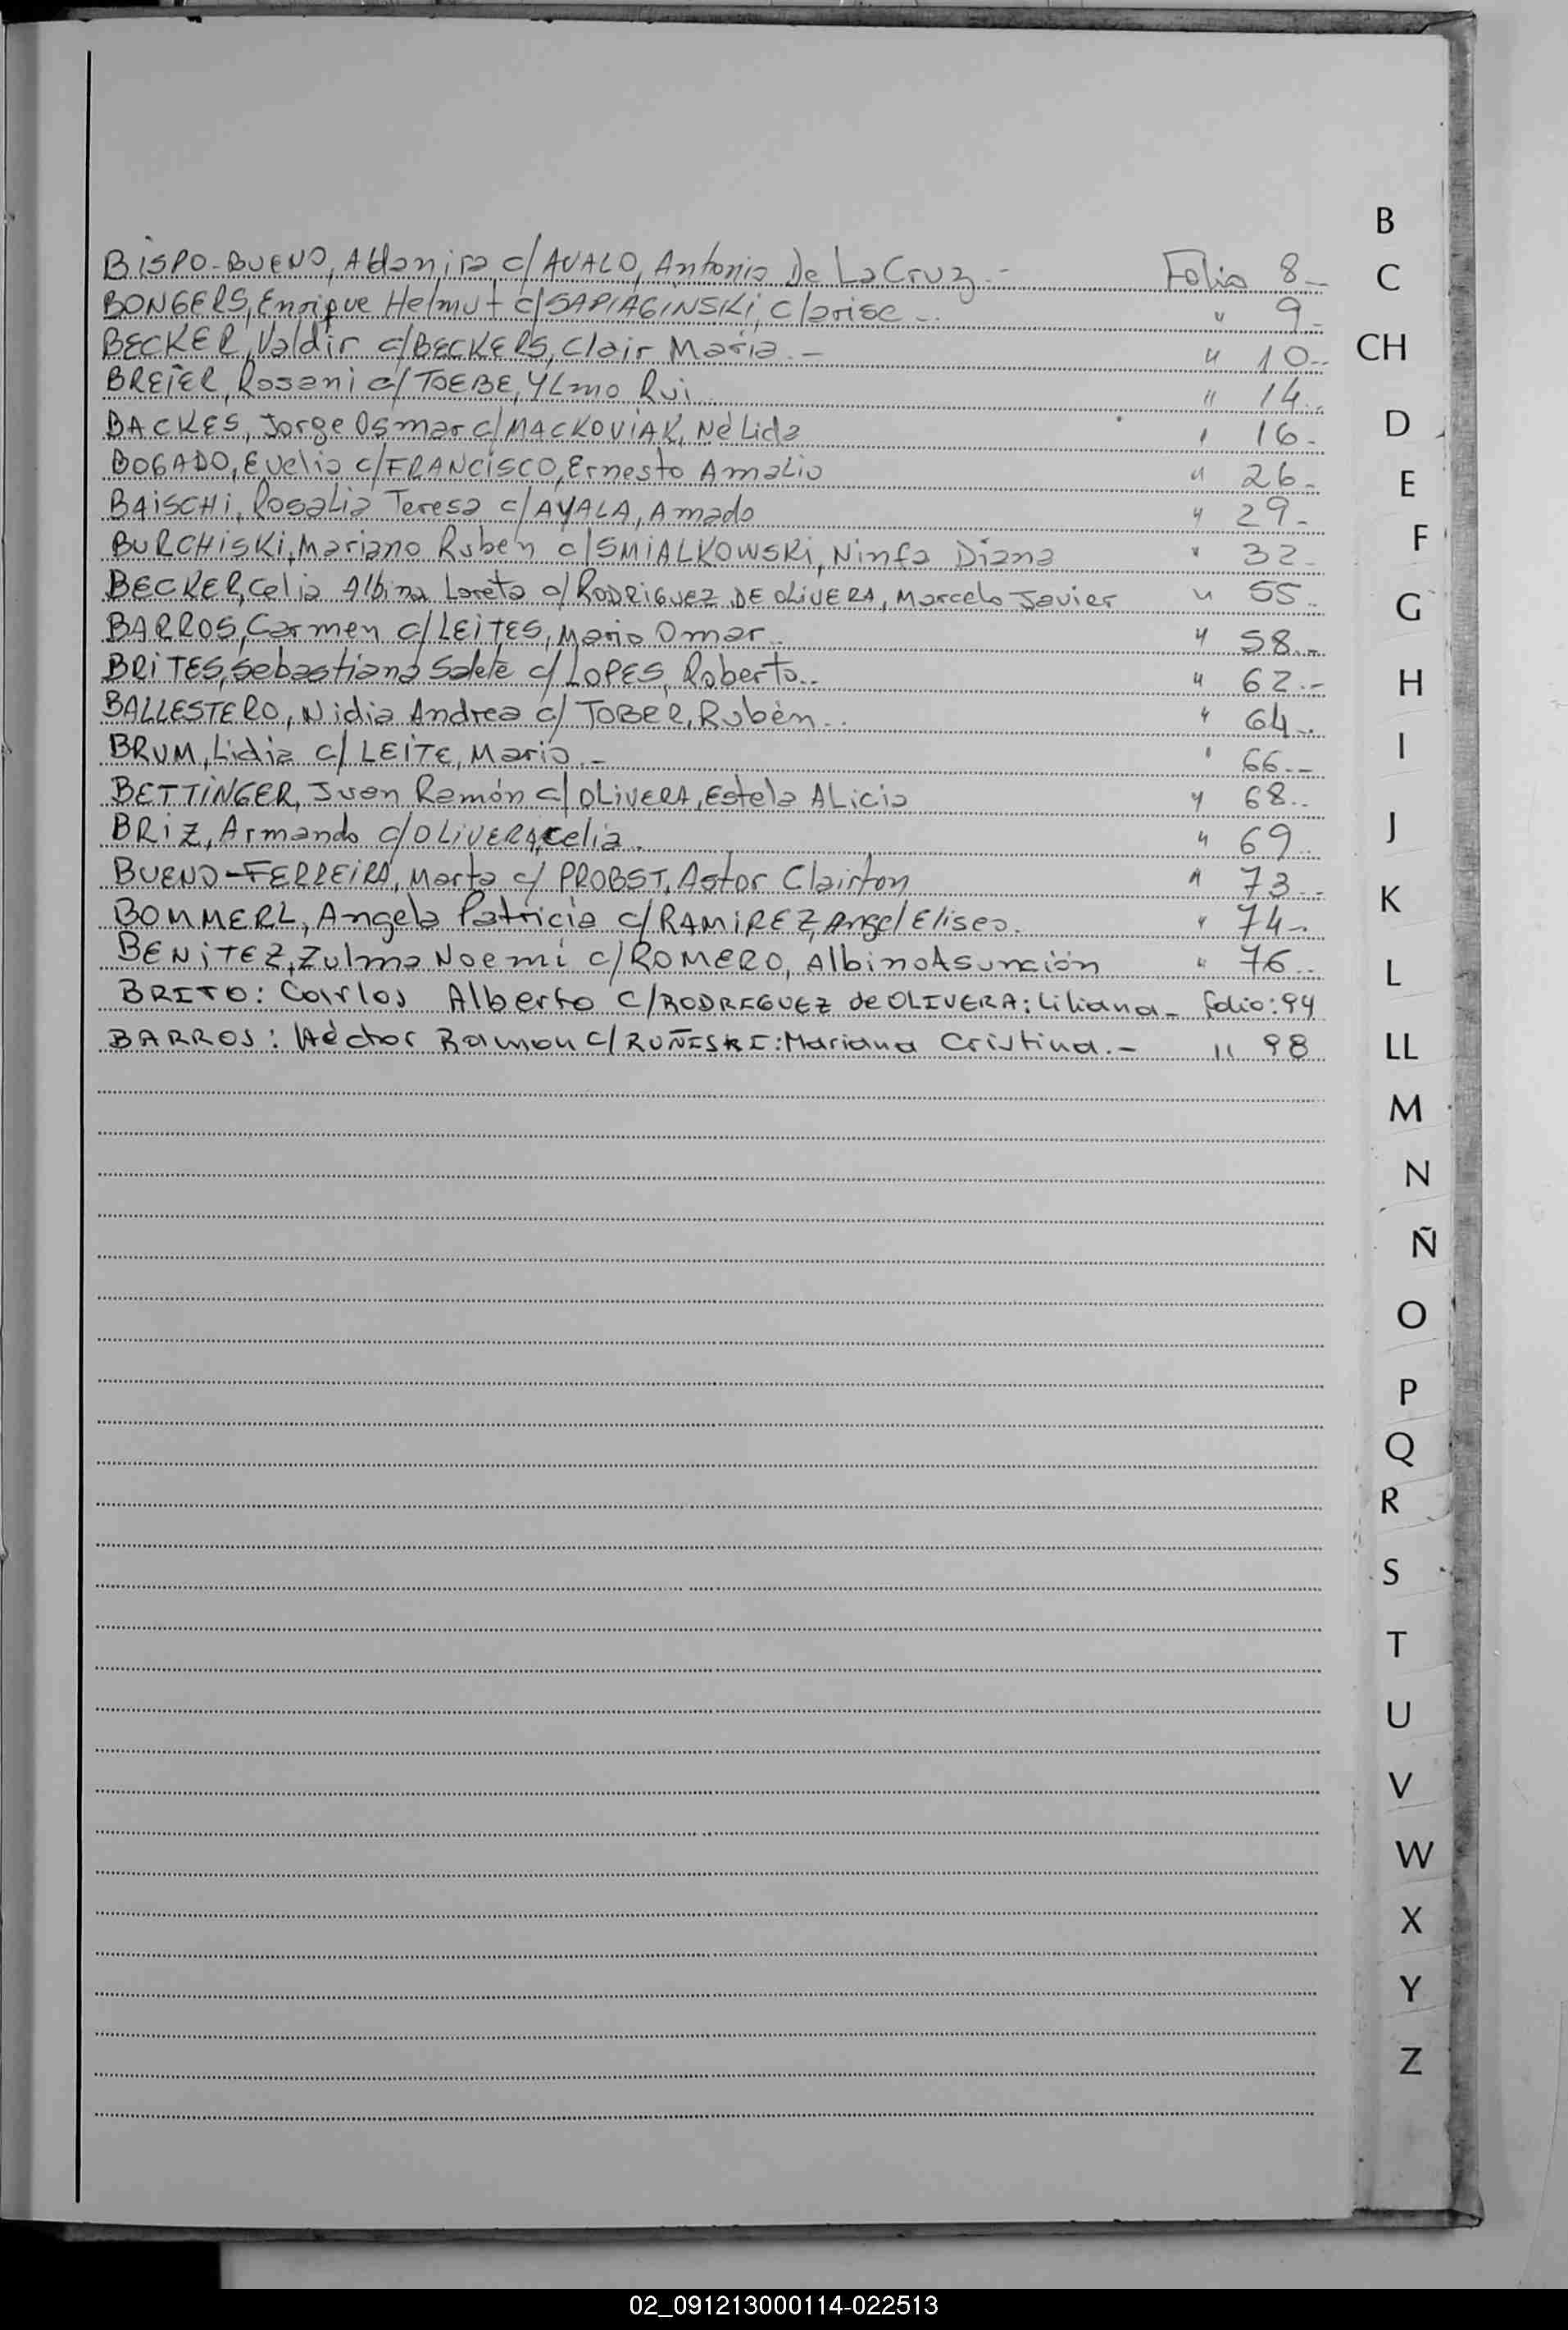 BISPO-BUENO, Aldamira c/ AVALO, Antonio De La Cruz.- Folio 8-
BONGERS, Enrique Helmut c/ SAPIAGINSKI, Clarise.. " 9-
BECKER, Valdir c/ BECKERS, Clair Maria.- " 10-
BREIER, Rosani c/ TOEBE, YLmo Rui.. " 14-
BACKES, Jorge Osmar c/ MACKOVIAK, NéLida " 16-
BOGADO, Evelio c/ FRANCISCO, Ernesto AmaLio " 26-
BAISCHI, RosaLia Teresa c/ AYALA, Amado " 29-
BURCHISKI, Mariano Ruben c/ SMIALKOWSKI, Ninfa Diana " 32-
BECKER, Celia Albina Loreto c/ RODRIGUEZ DE OLIVERA, Marcelo Javier " 55-
BARROS, Carmen c/ LEITES, Mario Omar.. " 58-
BRITES, Sebastiana Salete c/ LOPES, Roberto.. " 62.-
BALLESTERO, Nidia Andrea c/ TOBER, Rubén... " 64-
BRUM, Lidia c/ LEITE, Mario.- " 66.-
BETTINGER, Juan Ramón c/ OLIVERA, Estela ALicia " 68-
BRIZ, Armando c/ OLIVERA, Celia. " 69-
BUENO-FERREIRA, Marta c/ PROBST, Astor Clairton " 73-
BOMMERL, Angela Patricia c/ RAMIREZ, Angel Eliseo. " 74-
BENITEZ, Zulma Noemí c/ ROMERO, Albino Asunción " 76-
BRITO: Carlos Alberto c/ RODREGUEZ de OLIVERA: Liliana- folio: 94
BARROS: Héctor Ramon c/ RUÑESKI: Mariana Cristina.- " 98
B
C
CH
D
E
F
G
H
I
J
K
L
LL
M
N
Ñ
O
P
Q
R
S
T
U
V
W
X
Y
Z
02_091213000114-022513